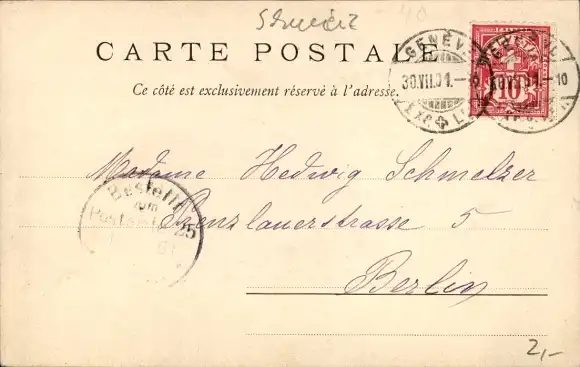 Schweiz
CARTE POSTALE
Ce côté est exclusivement réservé à l'adresse.
GENÈVE
30.VII.01.—
10
Madame Hedwig Schmelzer
Prenzlauerstrasse 5
Berlin
Bestellt
vom
Postamte 25
2,-